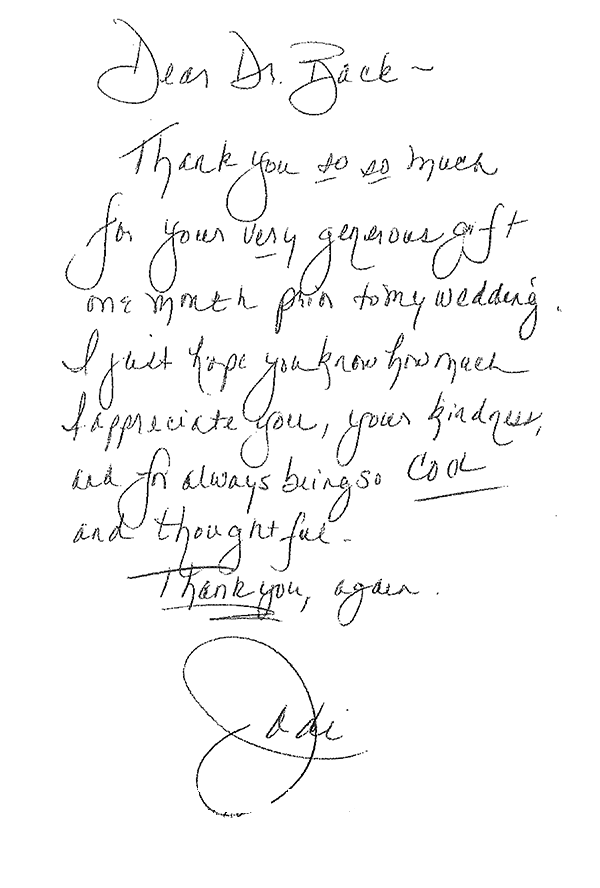 Dear Dr. Back ~
Thank you so so much
for your very generous gift
one month prior to my wedding.
I just hope you know how much
I appreciate you, your kindness,
and for always being so cool
and thoughtful.
Thank you, again.
Jodi